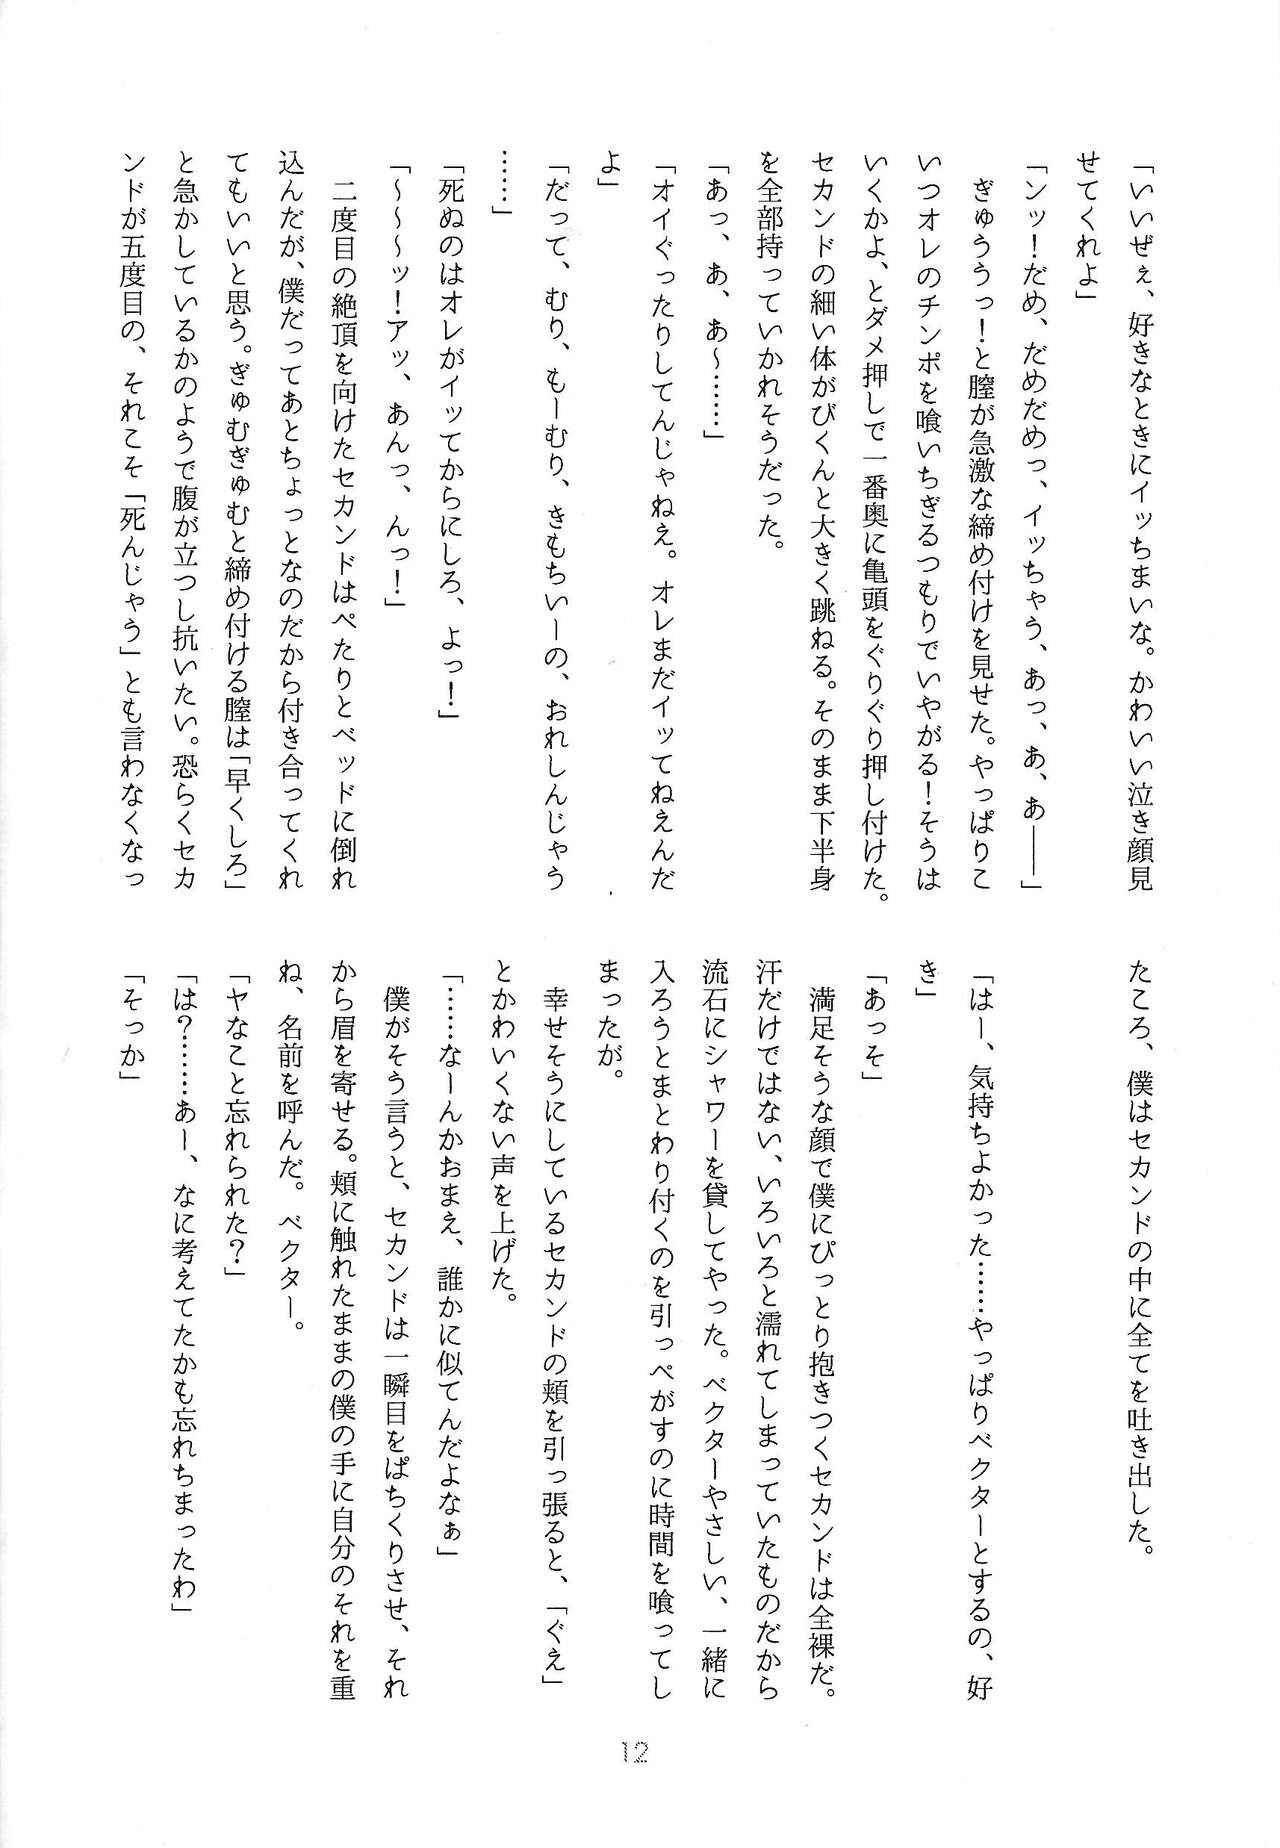 「いいぜぇ、好きなときにイッちまいな。かわいい泣き顔見
せてくれよ」
「ンッ！だめ、だめだめっ、イッちゃう、あっ、あ、あ――」
　ぎゅううっ！と膣が急激な締め付けを見せた。やっぱりこ
いつオレのチンポを喰いちぎるつもりでいやがる！そうは
いくかよ、とダメ押しで一番奥に亀頭をぐりぐり押し付けた。
セカンドの細い体がびくんと大きく跳ねる。そのまま下半身
を全部持っていかれそうだった。
「あっ、あ、あ～……」
「オイぐったりしてんじゃねえ。オレまだイッてねえんだ
よ」
「だって、むり、もーむり、きもちいーの、おれしんじゃう
……」
「死ぬのはオレがイッてからにしろ、よっ！」
「～～～ッ！アッ、あんっ、んっ！」
　二度目の絶頂を向けたセカンドはぺたりとベッドに倒れ
込んだが、僕だってあとちょっとなのだから付き合ってくれ
てもいいと思う。ぎゅむぎゅむと締め付ける膣は「早くしろ」
と急かしているかのようで腹が立つし抗いたい。恐らくセカ
ンドが五度目の、それこそ「死んじゃう」とも言わなくなっ
たころ、僕はセカンドの中に全てを吐き出した。
「はー、気持ちよかった……やっぱりベクターとするの、好
き」
「あっそ」
　満足そうな顔で僕にぴっとり抱きつくセカンドは全裸だ。
汗だけではない、いろいろと濡れてしまっていたものだから
流石にシャワーを貸してやった。ベクターやさしい、一緒に
入ろうとまとわり付くのを引っぺがすのに時間を喰ってし
まったが。
　幸せそうにしているセカンドの頬を引っ張ると、「ぐえ」
とかわいくない声を上げた。
「……なーんかおまえ、誰かに似てんだよなぁ」
　僕がそう言うと、セカンドは一瞬目をぱちくりさせ、それ
から眉を寄せる。頬に触れたままの僕の手に自分のそれを重
ね、名前を呼んだ。ベクター。
「ヤなこと忘れられた？」
「は？……あー、なに考えてたかも忘れちまったわ」
「そっか」
12